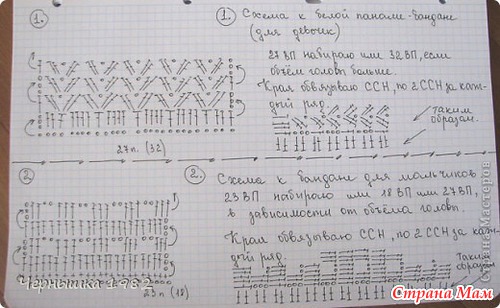 1.
1. Схема к белой панаме-бандане
(для девочек)
27 ВП набираю или 32 ВП, если
объём головы больше.
Края обвязываю ССН, по 2 ССН за каж-
дый ряд.
таким
образом.
27п. (32)
2
2. Схема к бандане для мальчиков
23 ВП набираю или 18 ВП или 27 ВП,
в зависимости от объёма головы.
Края обвязываю ССН, по 2 ССН за каж-
дый ряд.
Таким
образом
23п (18)
Чернышка 1982
Страна Мастеров
Страна Мам